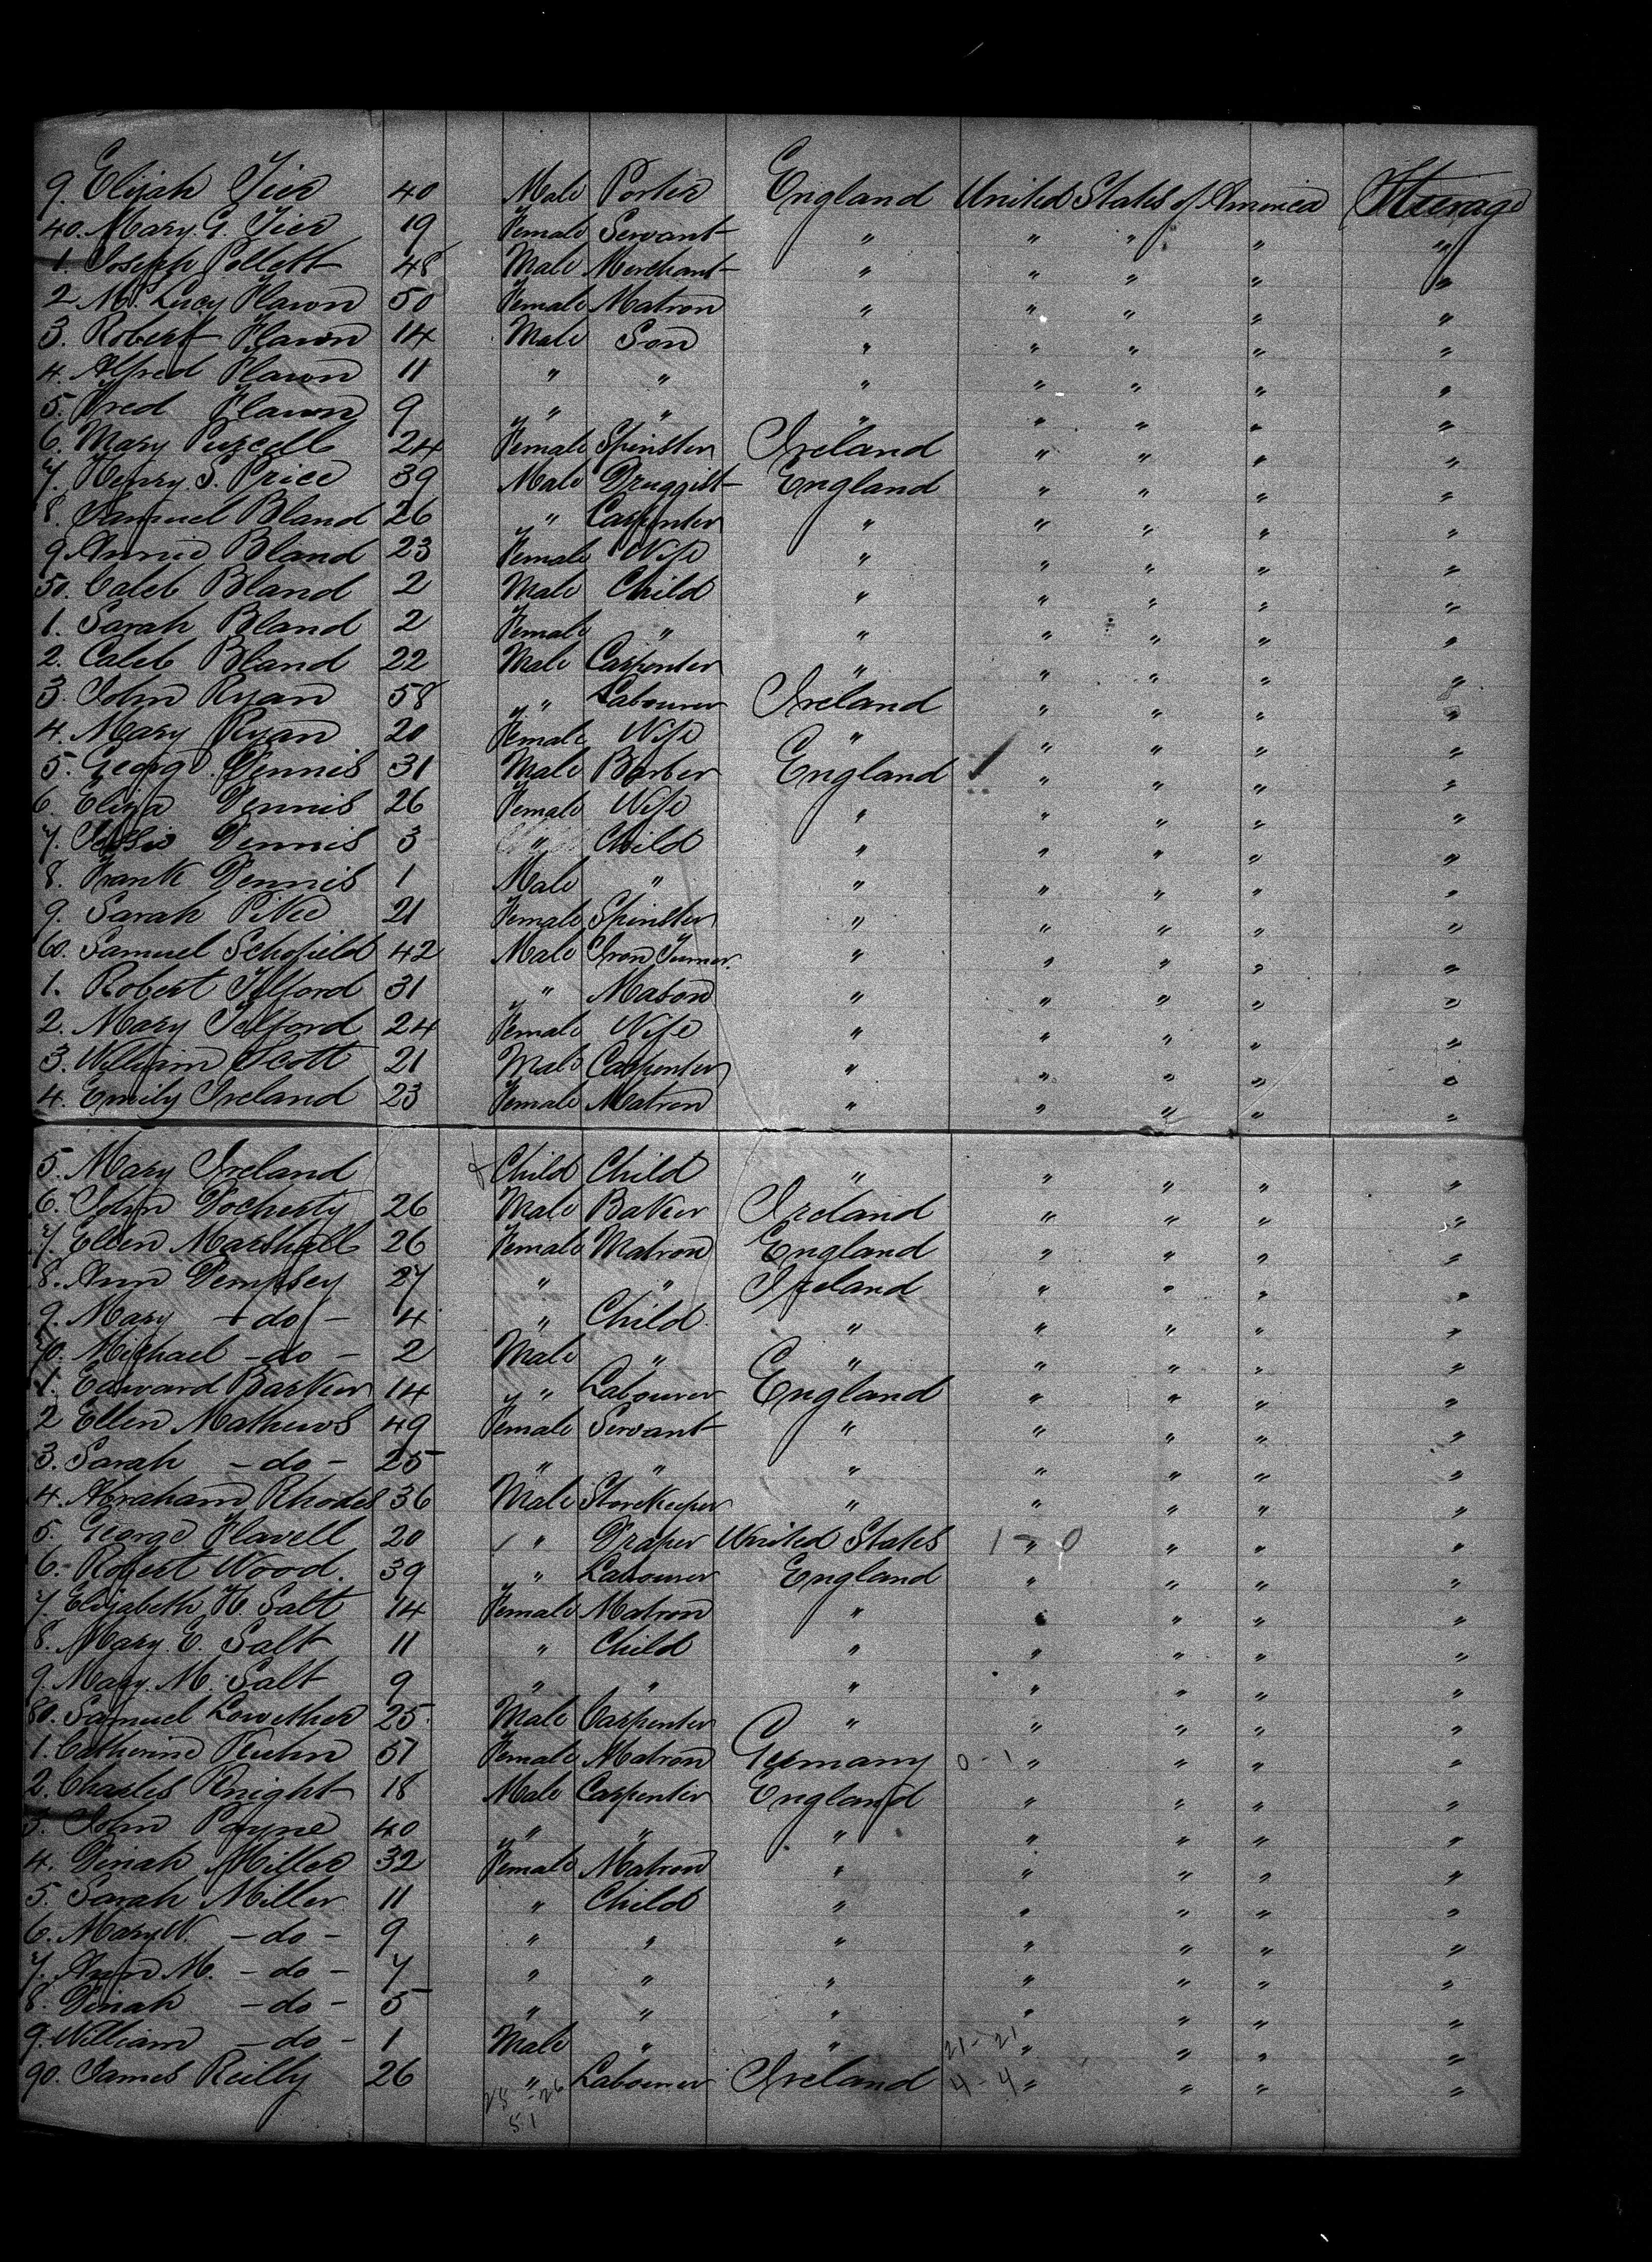 9. Elijah Tier 40 Male Porter England United States of America Steerage
40. Mary G. Tier 19 Female Servant " " " " "
1. Joseph Pollett 48 Male Merchant " " " " "
2 M. Lucy Flawn 50 Female Matron " " " " "
3. Robert Flawn 14 Male Son " " " " "
4. Alfred Flawn 11 " " " " " " "
5. Fred Flawn 9 " " " " " " "
6. Mary Purcell 24 Female Spinster Ireland " " " "
7. Henry S. Price 39 Male Druggist England " " " "
8. Samuel Bland 26 " Carpenter " " " " "
9 Annie Bland 23 Female Wife " " " " "
50. Caleb Bland 2 Male Child " " " " "
1. Sarah Bland 2 Female " " " " " "
2. Caleb Bland 22 Male Carpenter " " " " "
3. John Ryan 58 " Labourer Ireland " " " "
4. Mary Ryan 20 Female Wife " " " " "
5. George Dennis 31 Male Barber England " " " "
6. Eliza Dennis 26 Female Wife " " " " "
7. Dennis 3 " Child " " " " "
8. Frank Dennis 1 Male " " " " " "
9. Sarah Pike 21 Female Spinster " " " " "
60. Samuel Schofield 42 Male Iron Turner. " " " " "
1. Robert Telford 31 " Mason " " " " "
2. Mary Telford 24 Female Wife " " " " "
3. William Scott 21 Male Carpenter " " " " "
4. Emily Ireland 23 Female Matron " " " " "
5. Mary Ireland Child Child " " " " "
6. John Docherty 26 Male Baker Ireland " " " "
7. Ellen Marshall 26 Female Matron England " " " "
8. Ann Dempsey 27 " " Ireland " " " "
9. Mary - do - 4 " Child " " " " "
70. Michael - do - 2 Male " " " " " "
1. Edward Barker 14 " Labourer England " " " "
2 Ellen Mathews 49 Female Servant " " " " "
3. Sarah - do - 25 " " " " " " "
4. Abraham Rhodes 36 Male Storekeeper " " " " "
5. George Flavell 20 " Draper United States 1 " 0 " " "
6. Robert Wood. 39 " Labourer England " " " "
7. Elizabeth H. Salt 14 Female Matron " " " " "
8. Mary. E. Salt 11 " Child " " " " "
9. Mary. M. Salt 9 " " " " " " "
80. Samuel Lowether 25. Male Carpenter " " " " "
1. Catherine Kuhn 51 Female Matron Germany 0 - 1 " " " "
2. Charles Knight 18 Male Carpenter England " " " "
3. John Payne 40 " " " " " " "
4. Dinah Miller 32 Female Matron " " " " "
5. Sarah Miller 11 " Child " " " " "
6. Mary W. - do - 9 " " " " " " "
7. Ann M. - do - 7 " " " " " " "
8. Dinah - do - 5 " " " " " " "
9. William - do - 1 Male " " 21 - 21 " " " "
90. James Reilly 26 " Labourer Ireland 4 - 4 " " " "
25 - 26
51